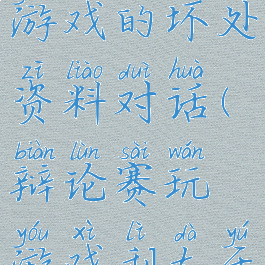 游戏的坏处
zī liào duì huà
资料对话(
biàn lùn sài wán
辩论赛玩
yóu xì lì dà yú
游戏利大于